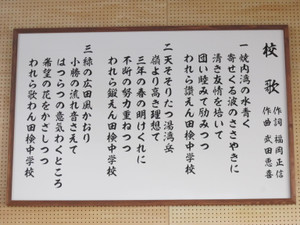 校歌
作詞 福岡正信
作曲 武田恵喜
一 焼内湾の水青く
寄せくる波のささやきに
清き友情を培いて
団い睦みて励みつつ
われら讃えん田検中学校
二 天そそりたつ湯湾岳
嶺より高き理想もて
三年の春の明けくれに
不断の努力重ねつつ
われら鍛えん田検中学校
三 緑の広田風かおり
小勝の流れ音さえて
はつらつの意気わくところ
希望の花をかざしつつ
われら歌わん田検中学校